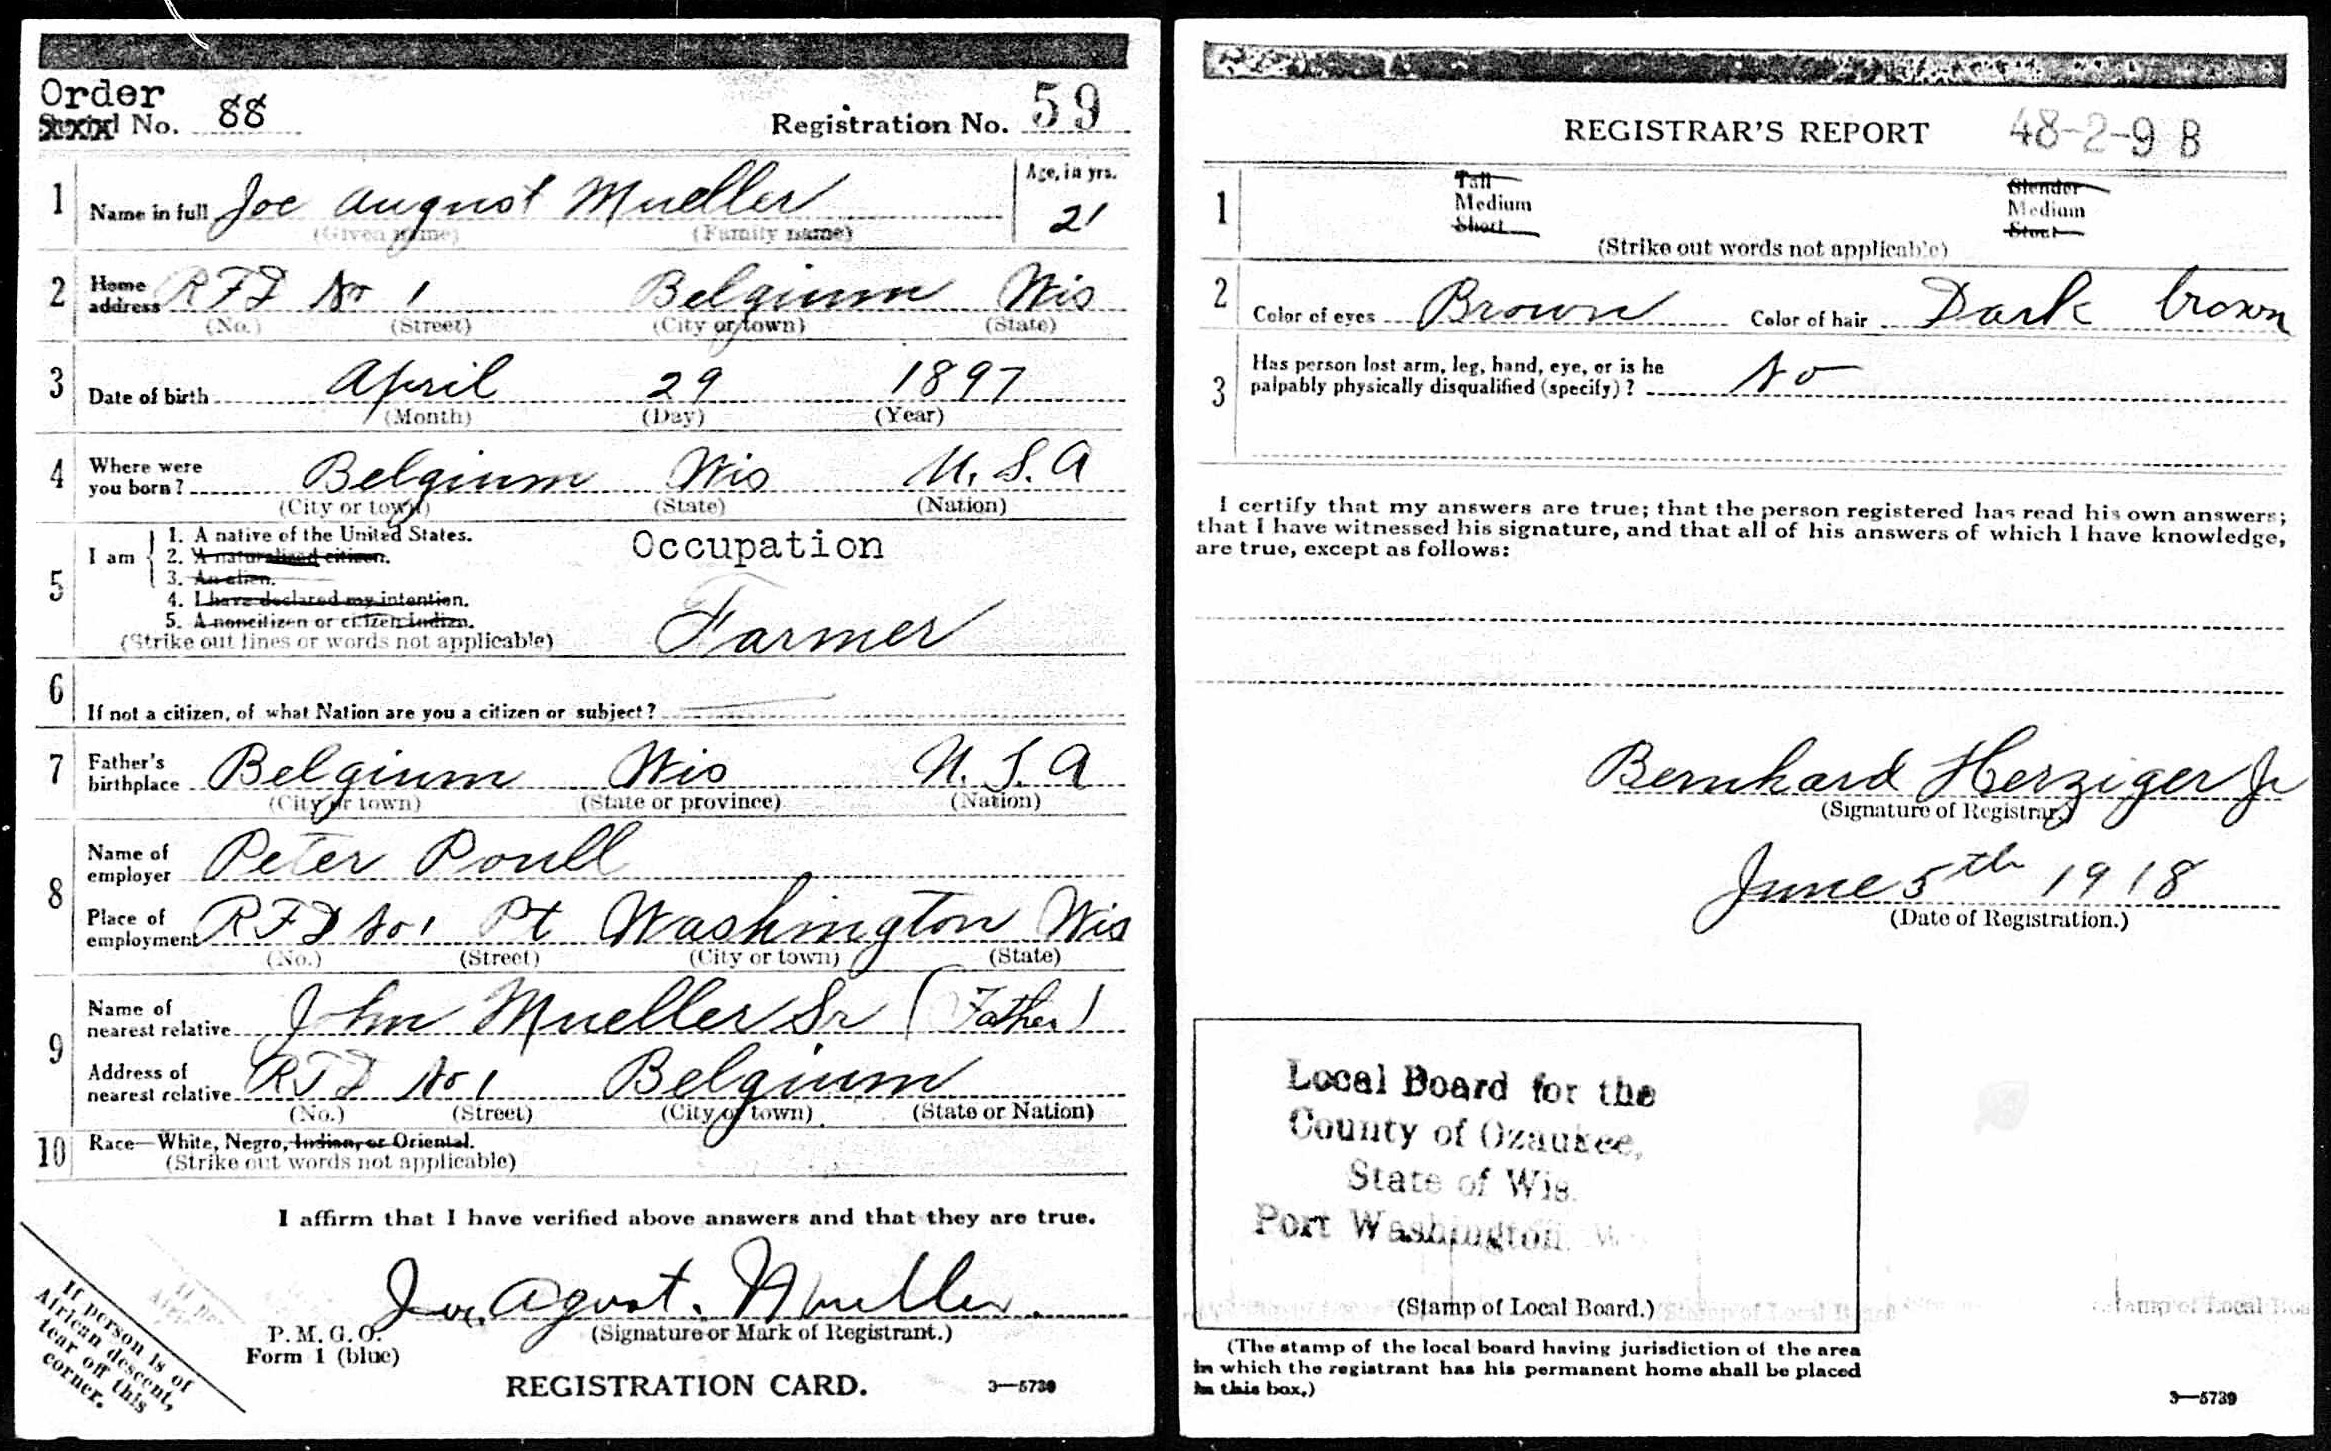 Order
Serial No. 88
Registration No. 59
1 Name in full Joe August Mueller
(Given name) (Family name)
Age, in yrs.
21
2 Home address RFD No 1 Belgium Wis
(No.) (Street) (City or town) (State)
3 Date of birth April 29 1897
(Month) (Day) (Year)
4 Where were you born? Belgium Wis U. S. A
(City or town) (State) (Nation)
5 I am
1. A native of the United States.
2. A naturalized citizen.
3. An alien.
4. I have declared my intention.
5. A noncitizen or citizen Indian.
(Strike out lines or words not applicable)
Occupation
Farmer
6 If not a citizen, of what Nation are you a citizen or subject?
7 Father's birthplace Belgium Wis U. S. A
(City or town) (State or province) (Nation)
8 Name of employer Peter Poull
Place of employment RFD No 1 Pt Washington Wis
(No.) (Street) (City or town) (State)
9 Name of nearest relative John Mueller Sr (Father)
Address of nearest relative RFD No 1 Belgium
(No.) (Street) (City or town) (State or Nation)
10 Race—White, Negro, Indian, or Oriental.
(Strike out words not applicable)
I affirm that I have verified above answers and that they are true.
Joe. Agust. Mueller.
(Signature or Mark of Registrant.)
P. M. G. O.
Form 1 (blue)
REGISTRATION CARD.
3—5739
If person is of
African descent,
tear off this
corner.
REGISTRAR'S REPORT 48-2-9 B
1 Tall Slender
Medium Medium
Short Stout
(Strike out words not applicable)
2 Color of eyes Brown Color of hair Dark brown
3 Has person lost arm, leg, hand, eye, or is he
palpably physically disqualified (specify)? No
I certify that my answers are true; that the person registered has read his own answers;
that I have witnessed his signature, and that all of his answers of which I have knowledge,
are true, except as follows:
Bernhard Herziger Jr
(Signature of Registrar.)
June 5th 1918
(Date of Registration.)
Local Board for the
County of Ozaukee,
State of Wis.
Port Washington.
(Stamp of Local Board.)
(The stamp of the local board having jurisdiction of the area
in which the registrant has his permanent home shall be placed
in this box.)
3—5739